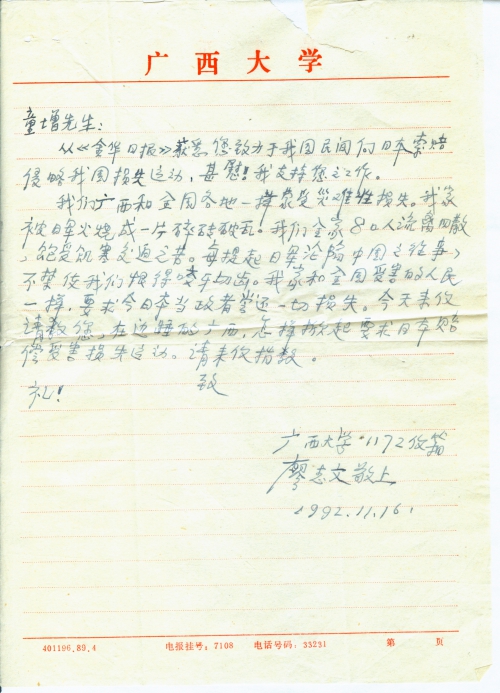 广西大学
童增先生：
从《金华日报》获悉您致力于我国民间向日本索赔
侵略我国损失运动，甚慰！我支持您之工作。
我们广西和全国各地一样蒙受灾难性损失。我家
被日军火烧成一片碎砖破瓦。我们全家8口人流离四散
，饱受饥寒交迫之苦。每提起日军沦陷中国之往事，
不禁使我们恨得咬牙切齿。我家和全国受害的人民
一样，要求今日本当政者赏还一切损失。今天来信
请教您，在边陲的广西，怎样掀起要求日本赔
偿受害损失运动。请来信指教。
致
礼！
广西大学·1172信箱
廖志文敬上
1992.11.16
401196.89.4 电报挂号：7108 电话号码：33231 第 页